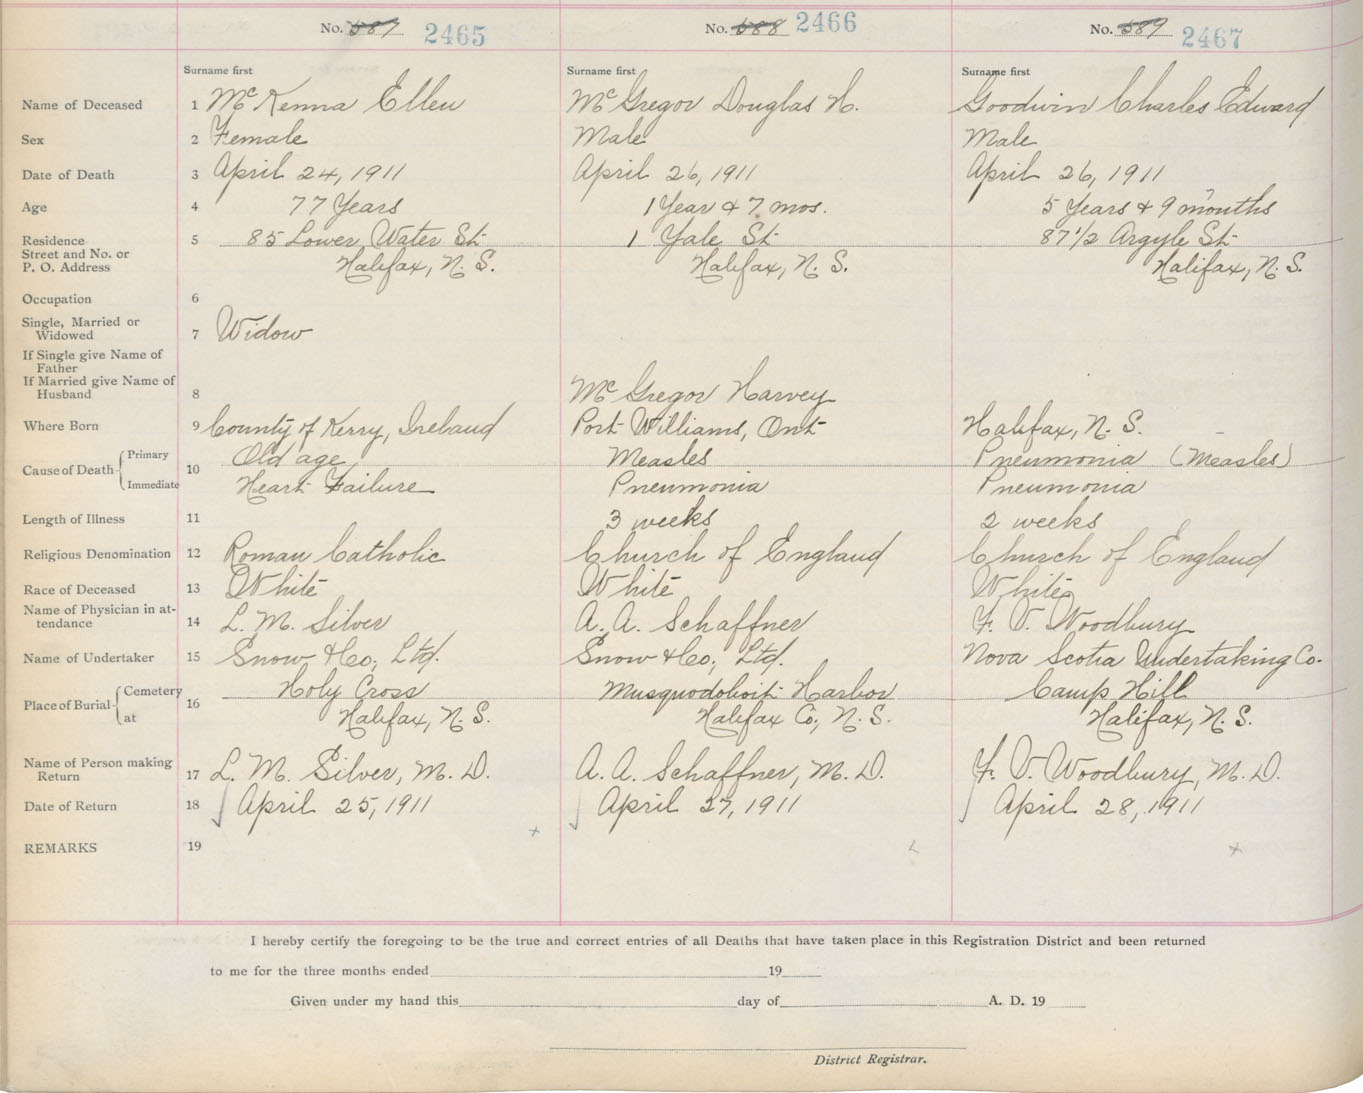 No. 587 2465 No. 588 2466 No. 589 2467
Surname first Surname first Surname first
Name of Deceased 1 McKenna Ellen McGregor Douglas H. Goodwin Charles Edward
Sex 2 Female Male Male
Date of Death 3 April 24, 1911 April 26, 1911 April 26, 1911
Age 4 77 Years 1 Year & 7 mos. 5 Years & 9 months
Residence 5 85 Lower Water St 1 Yale St 87 1/2 Argyle St
Street and No. or
P. O. Address Halifax, N. S. Halifax, N. S. Halifax, N. S.
Occupation 6
Single, Married or
Widowed 7 Widow
If Single give Name of
Father
If Married give Name of
Husband 8 McGregor Harvey
Where Born 9 County of Kerry, Ireland Port Williams, Ont Halifax, N. S.
Cause of Death Primary 10 Old age Measles Pneumonia (Measles)
Immediate Heart Failure Pneumonia Pneumonia
Length of Illness 11 3 weeks 2 weeks
Religious Denomination 12 Roman Catholic Church of England Church of England
Race of Deceased 13 White White White
Name of Physician in at-
tendance 14 L. M. Silver A. A. Schaffner F. V. Woodbury
Name of Undertaker 15 Snow & Co; Ltd. Snow & Co; Ltd. Nova Scotia Undertaking Co.
Place of Burial Cemetery 16 Holy Cross Musquodoboit Harbor Camp Hill
at Halifax, N. S. Halifax Co; N. S. Halifax, N. S.
Name of Person making
Return 17 L. M. Silver, M. D. A. A. Schaffner, M. D. F. V. Woodbury, M. D.
Date of Return 18 April 25, 1911 April 27, 1911 April 28, 1911
REMARKS 19
I hereby certify the foregoing to be the true and correct entries of all Deaths that have taken place in this Registration District and been returned
to me for the three months ended 19
Given under my hand this day of A. D. 19
District Registrar.